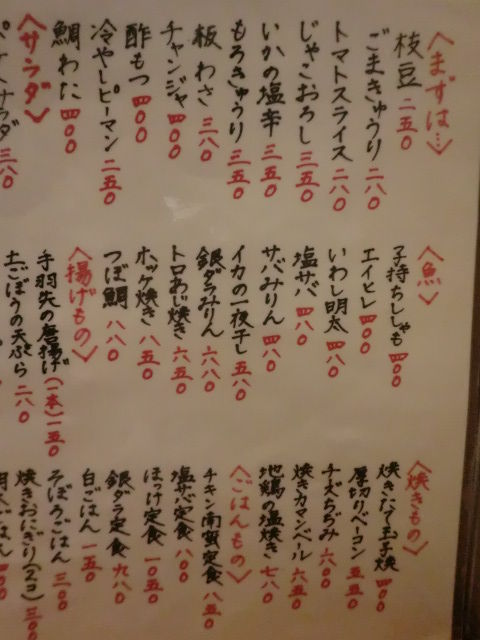 〈まずは…〉
枝豆 二五〇
ごまきゅうり 二八〇
トマトスライス 二八〇
じゃこおろし 三五〇
いかの塩辛 三五〇
もろきゅうり 三五〇
板わさ 三八〇
チャンジャ 四〇〇
酢もつ 四〇〇
冷やしピーマン 二五〇
鯛わた 四〇〇
〈サラダ〉
〈魚〉
子持ちししゃも 四〇〇
エイヒレ 四〇〇
いわし明太 四八〇
塩サバ 四八〇
サバみりん 四八〇
イカの一夜干し 五八〇
銀ダラみりん 六八〇
トロあじ焼き 六五〇
ホッケ焼き 八五〇
つぼ鯛 八八〇
〈揚げもの〉
手羽先の唐揚げ(一本)一五〇
土ごぼうの天ぷら 二八〇
〈焼きもの〉
焼きたて玉子焼 四〇〇
厚切りベーコン 五五〇
チーズちぢみ 六〇〇
焼きカマンベール 六五〇
地鶏の塩焼き 七八〇
〈ごはんもの〉
チキン南蛮定食 八五〇
塩サバ定食 八〇〇
ほっけ定食 一〇五〇
銀ダラ定食 九八〇
白ごはん 一五〇
そぼろごはん 三〇〇
焼きおにぎり(2コ) 三〇〇